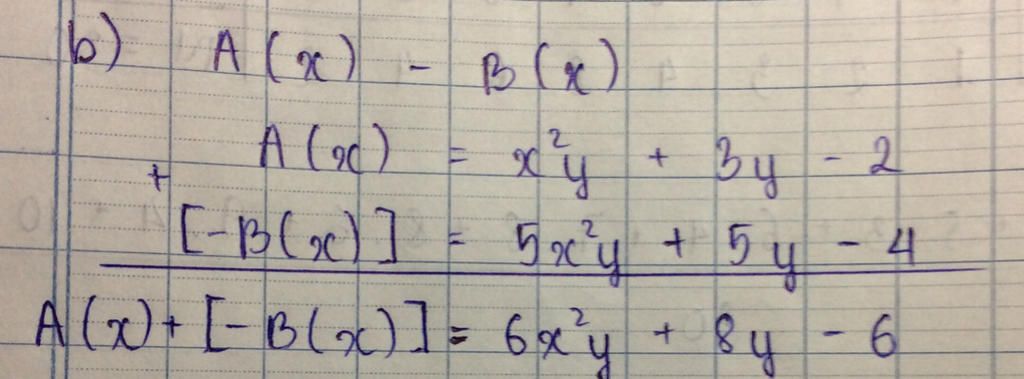 b) A(x) - B(x)
A(x) = x²y + 3y - 2
+
[-B(x)] = 5x²y + 5y - 4
A(x) + [-B(x)] = 6x²y + 8y - 6